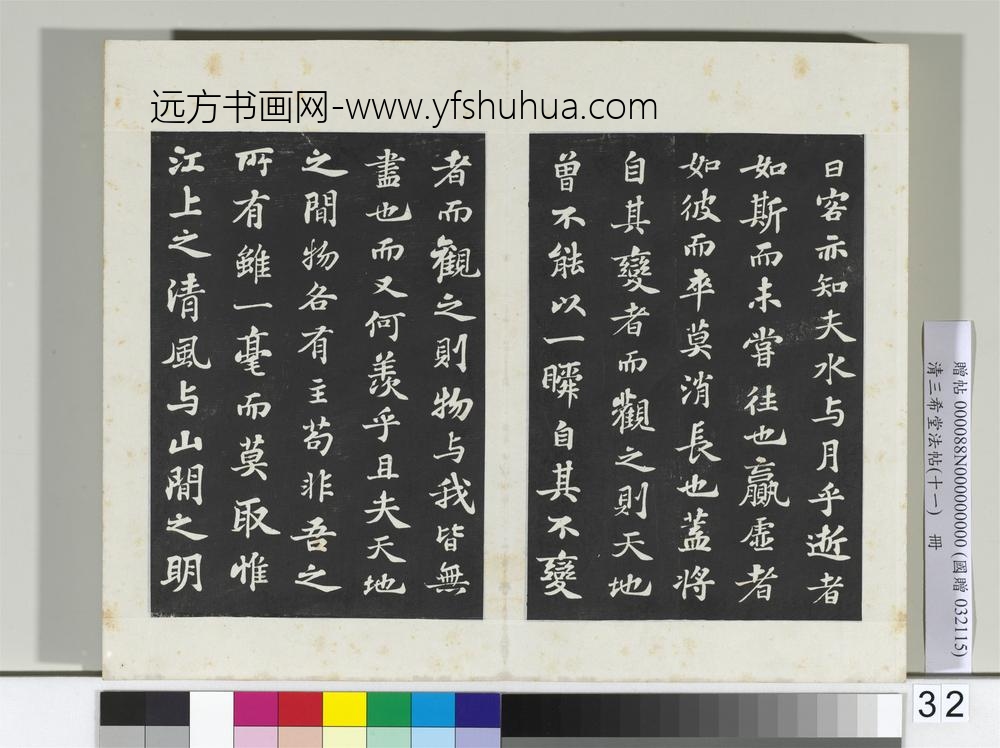 远方书画网-www.yfshuhua.com
曰客亦知夫水与月乎逝者
如斯而未嘗往也贏虛者
如彼而卒莫消長也蓋將
自其變者而觀之則天地
曾不能以一瞬自其不變
者而觀之則物与我皆無
盡也而又何羨乎且夫天地
之間物各有主苟非吾之
所有雖一毫而莫取惟
江上之清風与山間之明
贈帖 000088N000000000 (國贈 032115)
清三希堂法帖(十一) 冊
32